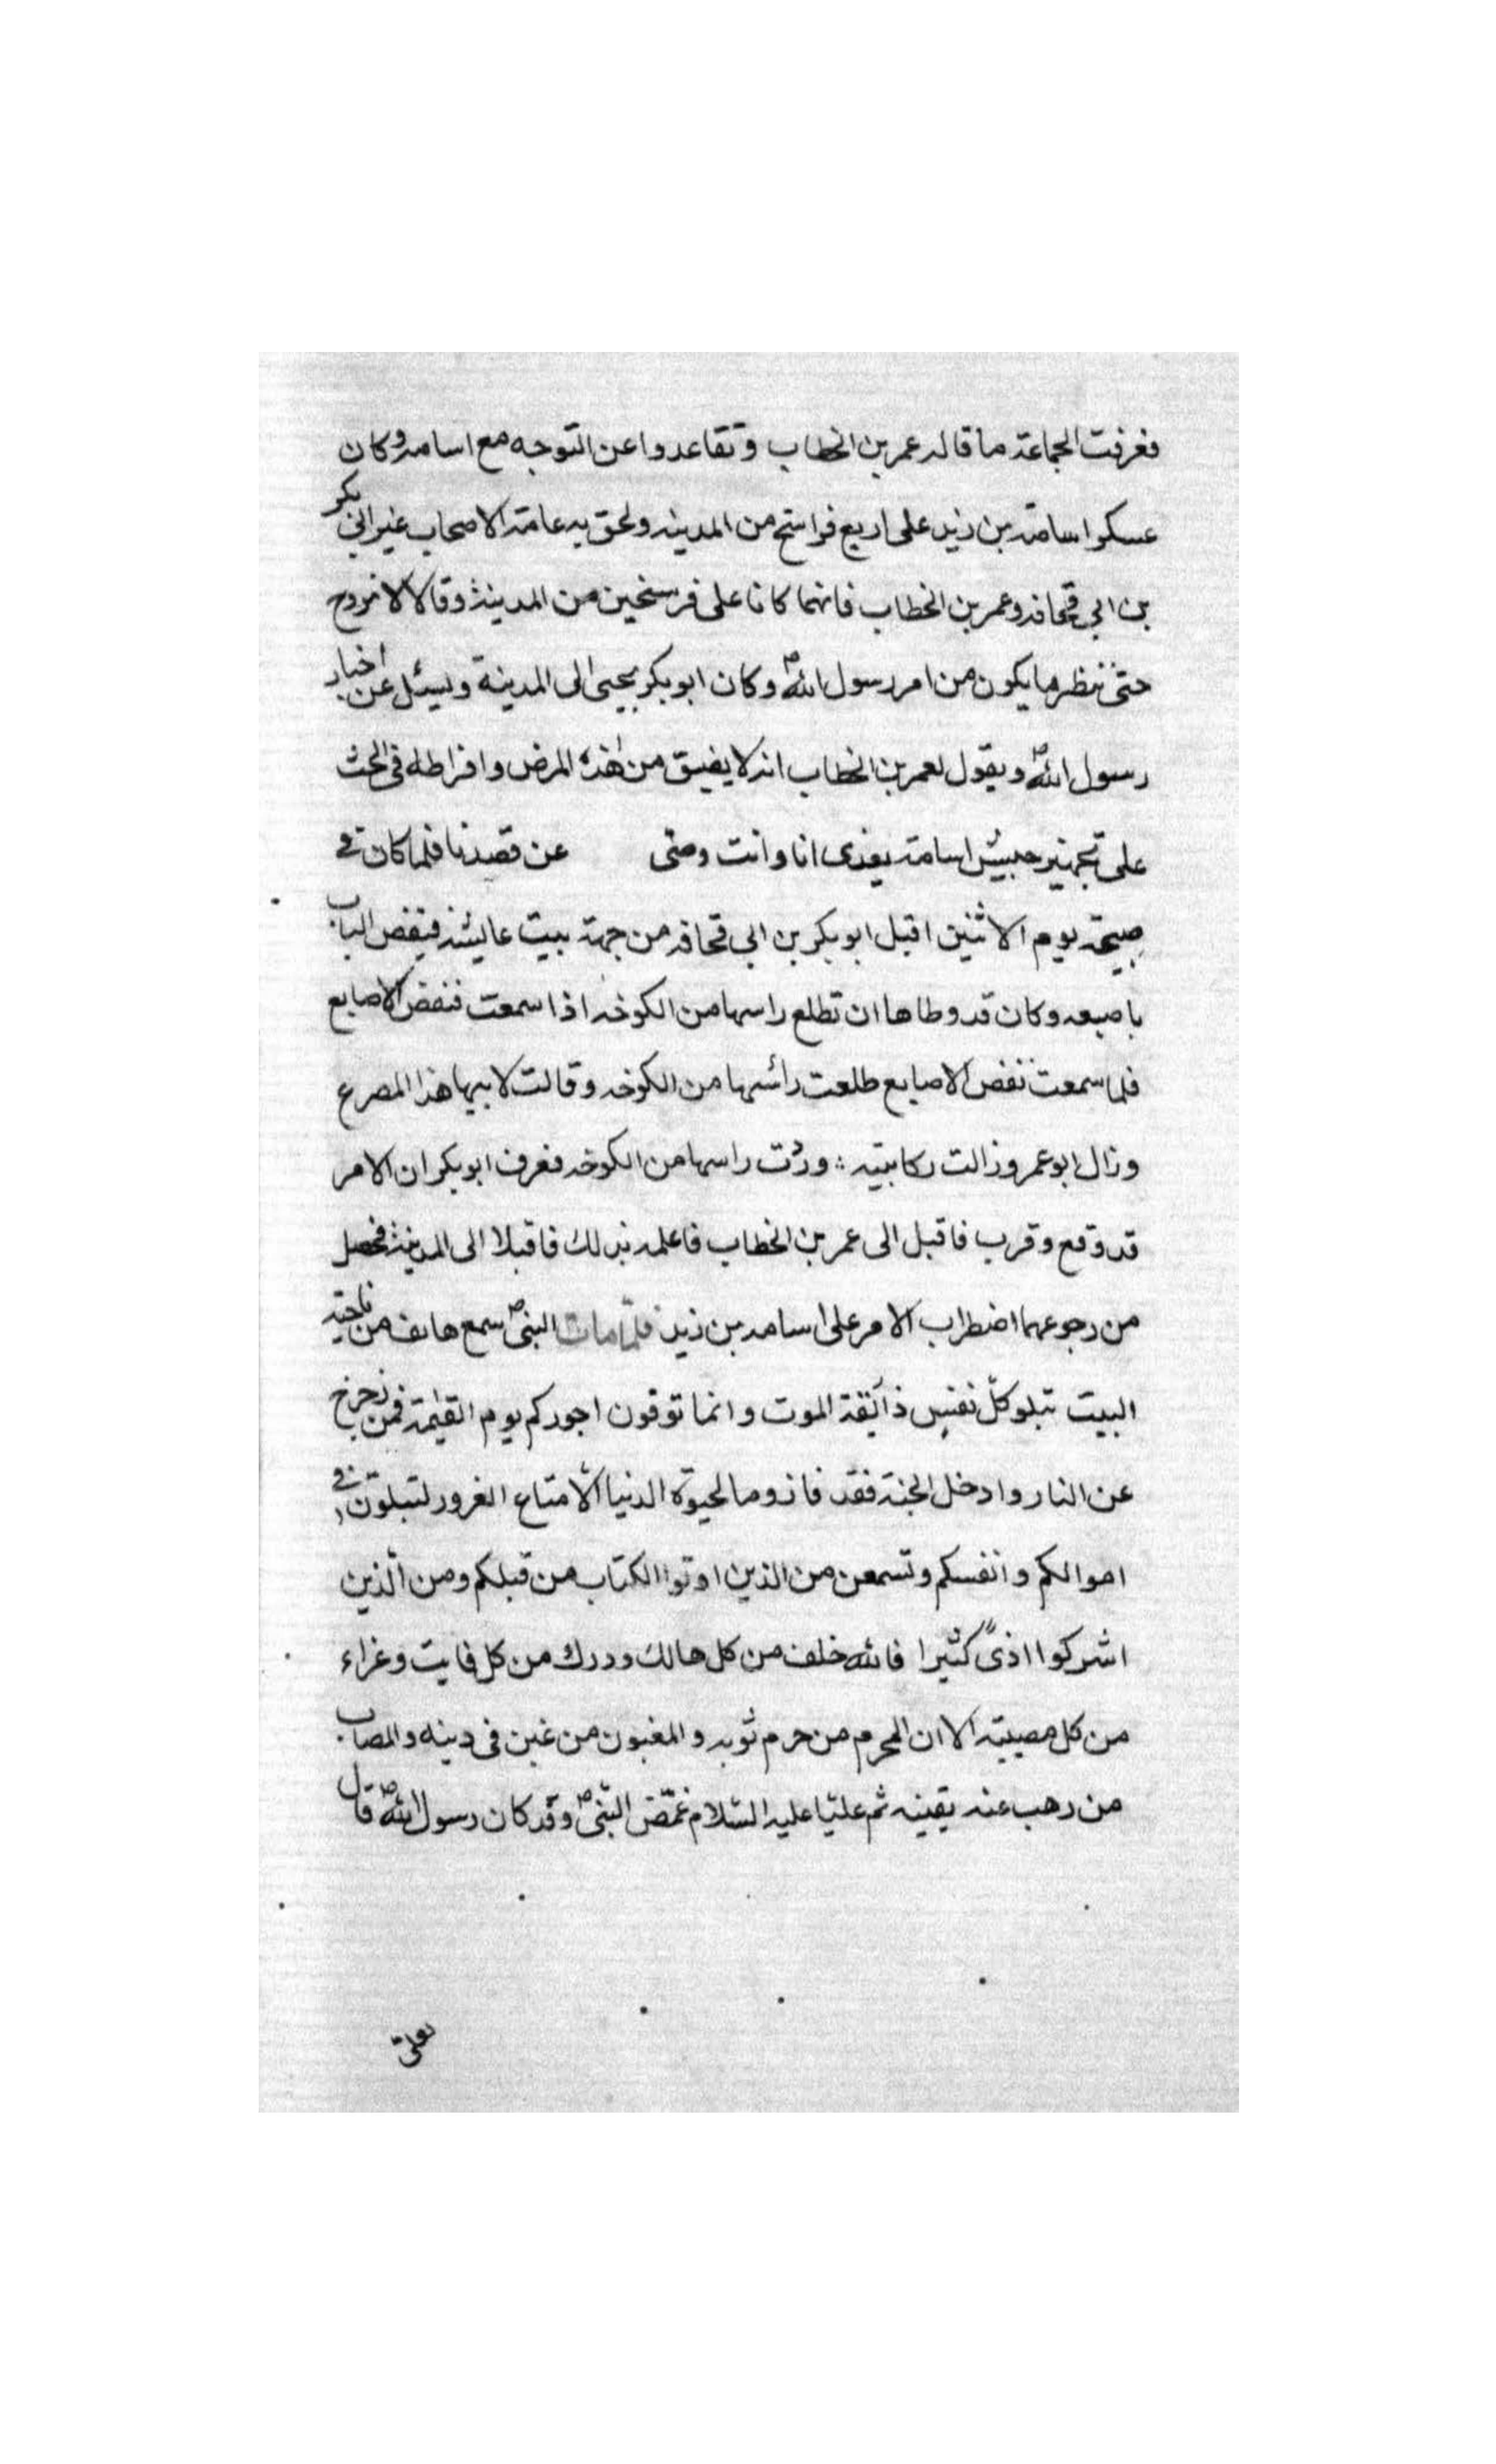 فعرفت الجماعة ما قاله عمر بن الخطاب وتقاعدوا عن التوجه مع اسامه وكان
عسكر اسامة بن زيد على اربع فراسخ من المدينه ولحق به عامة الاصحاب غير ابي بكر
بن ابي قحافه وعمر بن الخطاب فانهما كانا على فرسخين من المدينة وقالا لا نروح
حتى ننظر ما يكون من امر رسول اللهص وكان ابو بكر يجيئ الى المدينة ويسئل عن اخبار
رسول اللهص ويقول لعمر بن الخطاب انه لا يفيق من هذه المرض وافراطه في الحث
على تجهيز جيش اسامة انا وانت عن قصدنا فلما كان في
صبيحة يوم الاثنين اقبل ابو بكر بن ابي قحافه من جهة بيت عايشه فنقض الباب
باصبعه وكان قد وطاها ان تطلع راسها من الكوخه اذا سمعت نقض الاصابع
فلما سمعت نقض الاصابع طلعت رأسها من الكوخه وقالت لابيها هذا المصرع
وزال ابو عمر وزالت ركابيته : وردت راسها من الكوخه فعرف ابو بكر ان الامر
قد وقع وقرب فاقبل الى عمر بن الخطاب فاعلمه بذلك فاقبلا الى المدينة فحصل
من رجوعهما اضطراب الامر على اسامه بن زيد فلمّا مات النبيص سمع هاتف من ناحية
البيت تبلو كلّ نفسٍ ذآئقة الموت وانما توفون اجوركم يوم القيمة فمن زحزح
عن النار وادخل الجنة فقد فاز وما لحيوة الدنيا الّا متاع الغرور لتبلون في
اموالكم وانفسكم وتسمعن من الذين اوتوا الكتاب من قبلكم ومن الّذين
اشركوا اذىً كثيرا فالله خلف من كل هالك ودرك من كل فايت وغراء
من كل مصيبته الا ان المحرم من حرم ثوبه والمغبون من غبن في دينه والمصاب
من رهب عنه يقينه ثم عليّا عليه السّلام غمّض النّبيص وقد كان رسول اللهص قال